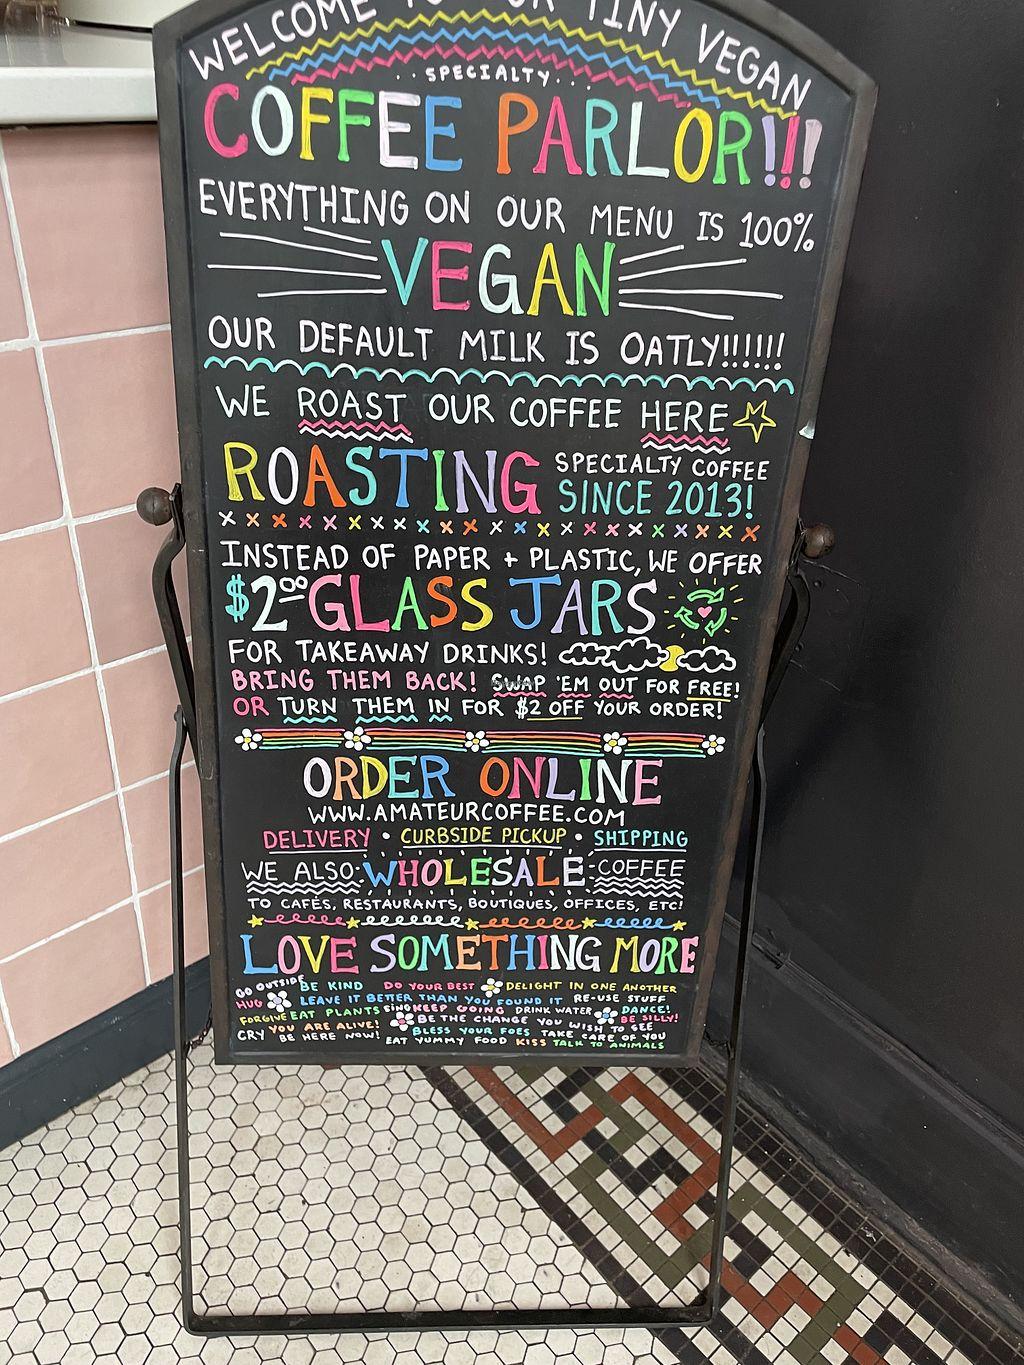 WELCOME TO OUR TINY VEGAN
..SPECIALTY...
COFFEE PARLOR!!!
EVERYTHING ON OUR MENU IS 100%
VEGAN
OUR DEFAULT MILK IS OATLY!!!!!!
WE ROAST OUR COFFEE HERE
ROASTING SPECIALTY COFFEE
SINCE 2013!
INSTEAD OF PAPER + PLASTIC, WE OFFER
$2.00 GLASS JARS
FOR TAKEAWAY DRINKS!
BRING THEM BACK! SWAP 'EM OUT FOR FREE!
OR TURN THEM IN FOR $2 OFF YOUR ORDER!
ORDER ONLINE
WWW.AMATEURCOFFEE.COM
DELIVERY • CURBSIDE PICKUP • SHIPPING
WE ALSO WHOLESALE COFFEE
TO CAFÉS, RESTAURANTS, BOUTIQUES, OFFICES, ETC!
LOVE SOMETHING MORE
GO OUTSIDE BE KIND DO YOUR BEST DELIGHT IN ONE ANOTHER
HUG LEAVE IT BETTER THAN YOU FOUND IT RE-USE STUFF
FORGIVE EAT PLANTS SING KEEP GOING DRINK WATER DANCE!
YOU ARE ALIVE! BE THE CHANGE YOU WISH TO SEE BE SILLY!
CRY BE HERE NOW! BLESS YOUR FOES TAKE CARE OF YOU
EAT YUMMY FOOD KISS TALK TO ANIMALS